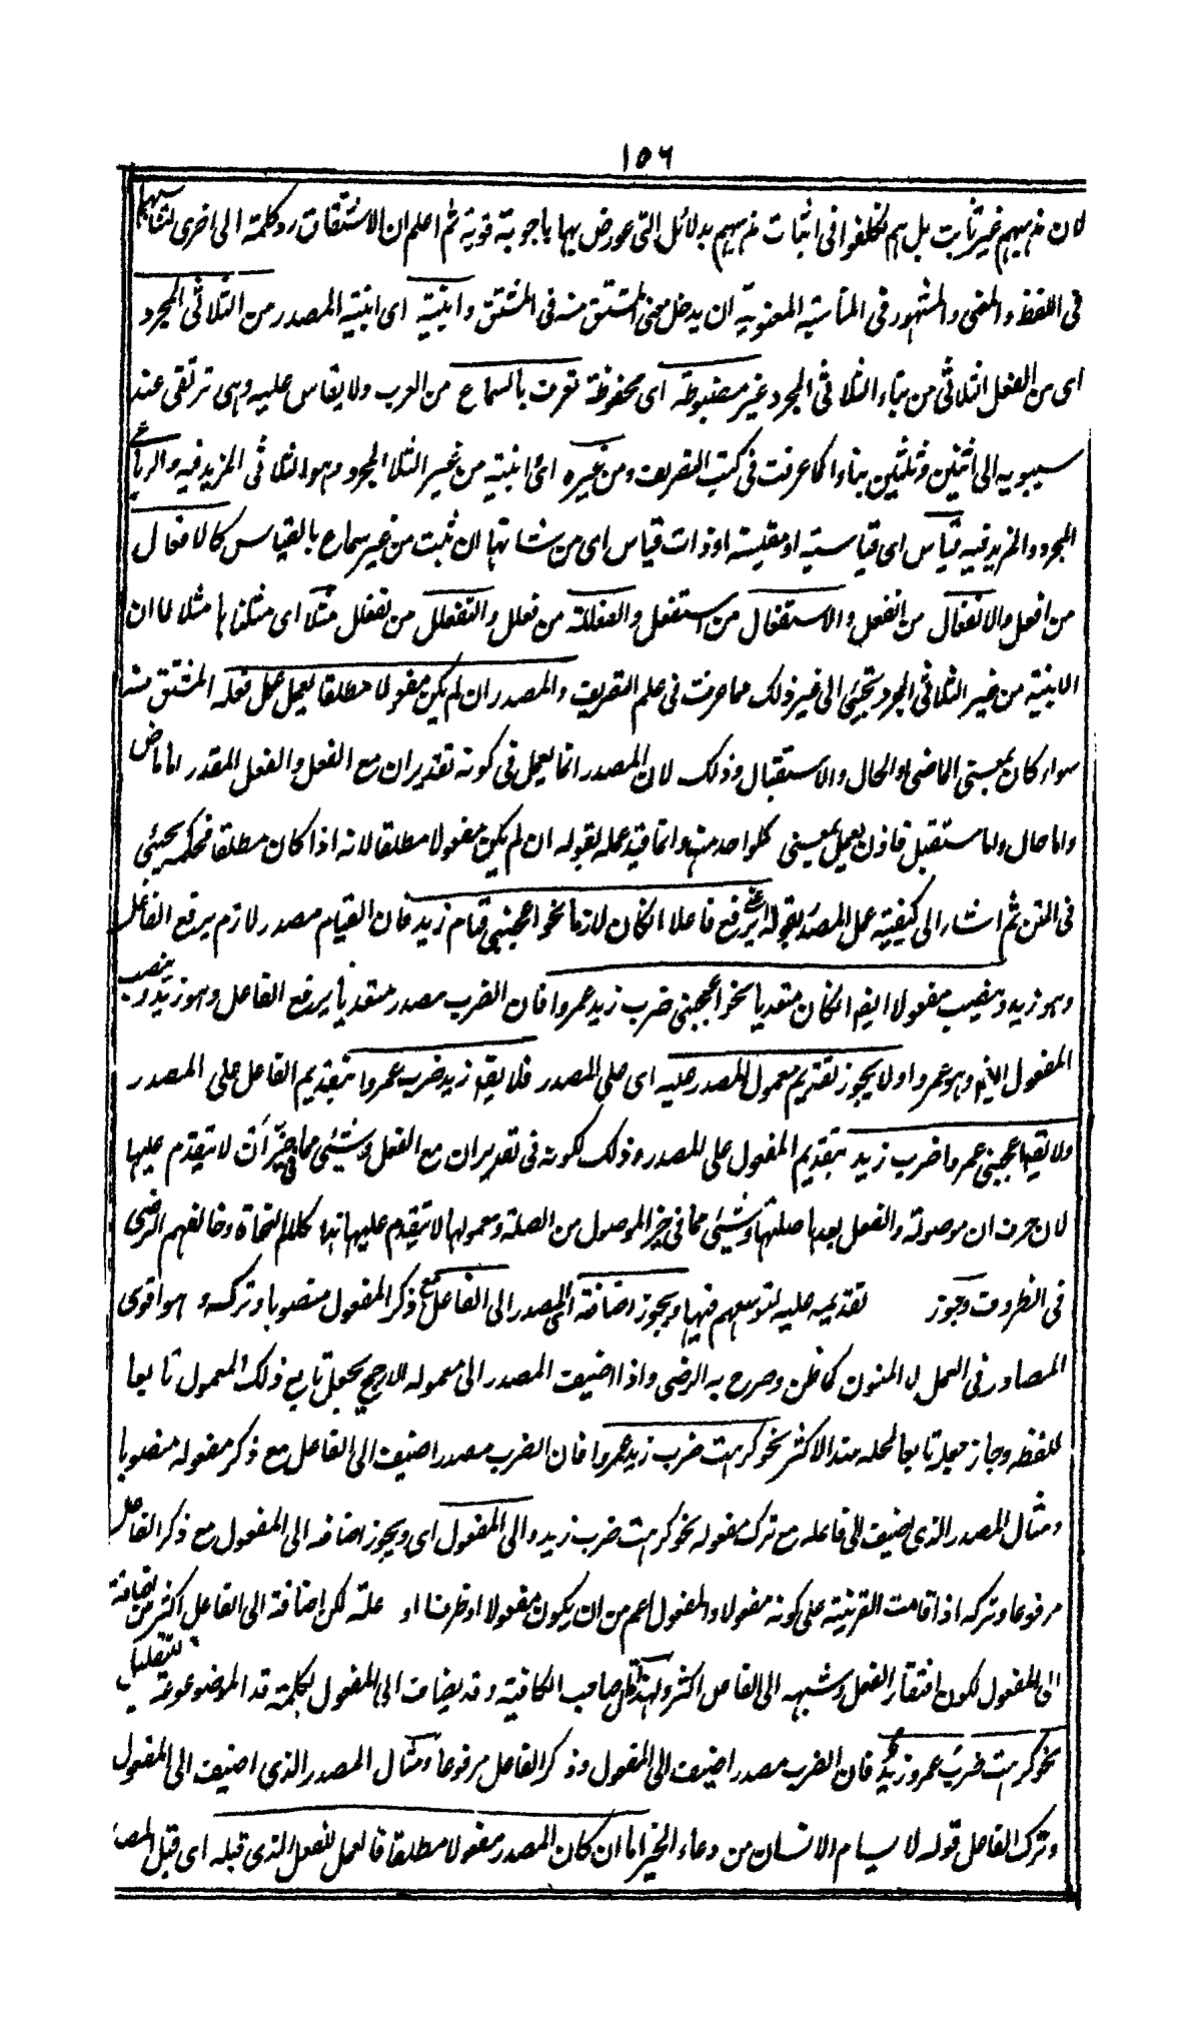 ١٥٦
لان مذهبهم غير ثابت بل هم تكلفوا فى اثبات مذهبهم بدلائل التى عورض بها باجوبة قوية ثم اعلم ان الاشتقاق رد كلمة الى اخرى لتناسبهما
فى اللفظ والمعنى والمشهور فى المناسبة المعنوية ان يدخل معنى المشتق منه فى المشتق وابنيته اى ابنية المصدر من الثلاثى المجرد
اى من الفعل الثلاثى من بناء الثلاثى المجرد غير مضبوطة اى محفوظة تعرف بالسماع من العرب ولا يقاس عليه وهى ترتقى عند
سيبويه الى اثنين وثلثين بناء كما عرفت فى كتب التصريف ومن غيره اى ابنية من غير الثلا المجرد وهو الثلاثى المزيد فيه والرباعى
المجرد والمزيد فيه قياس اى قياسية او مقيسة او ذات قياس اى من شانها ان ثبت من غير سماع بالقياس كالافعال
من افعل والانفعال من انفعل والاستفعال من استفعل والفعللة من فعلل والتفعلل من تفعلل مثلا اى مثلنا ها مثلا لا ان
الابنية من غير الثلاثى المجرد يجئى الى غير ذلك مما عرفت فى علم التصريف والمصدر ان لم يكن مفعولا مطلقا يعمل عمل فعله المشتق منه
سواء كان بمعنى الماضى او الحال والاستقبال وذلك لان المصدر انما يعمل فى كونه تقدير ان مع الفعل والفعل المقدر اما ماض
واما حال واما مستقبل فاذن يعمل بمعنى كلواحد منها وانما قيد عمله بقوله ان لم يكن مفعولا مطلقا لانه اذا كان مطلقا فحكمه يجئى
فى المتن ثم اشار الى كيفية عمل المصدر بقوله يرفع فاعلا انكان لازما نحو اعجبنى قيام زيد فان القيام مصدر لازم يرفع الفاعل
وهو زيد وينصب مفعولا ايضا انكان متعديا نحو اعجبنى ضرب زيد عمروا فان الضرب مصدر متعد يرفع الفاعل وهو زيد وينصب
المفعول ايضا وهو عمروا ولا يجوز تقديم معمول المصدر عليه اى على المصدر فلا يقم زيد ضرب عمروا بتقديم الفاعل على المصدر
ولا يقم اعجبنى عمروا ضرب زيد بتقديم المفعول على المصدر وذلك لكونه فى تقدير ان مع الفعل وشيئى مما فى حيز ان لا يتقدم عليها
لان حرف ان موصولة والفعل بعدها صلتها وشيئى مما فى حيز الموصول من الصلة ومعمولها لا يتقدم عليها هذا كلام النحاة وخالفهم الرضى
فى الظروف وجوز تقديمه عليه لتوسعهم فيها ويجوز اضافة المصدر الى الفاعل مع ذكر المفعول منصوبا وتركه وهو اقوى
المصادر فى العمل لا المنون كما ظن وصرح به الرضى واذا اضيف المصدر الى معموله الارجح يجعل تابع ذلك المعمول تابعا
للفظه وجاز جعله تابعا لمحله عند الاكثر نحو كرهت ضرب زيد عمروا فان الضرب مصدر اضيف الى الفاعل مع ذكر مفعوله منصوبا
ومثال المصدر الذى اضيف الى فاعله مع ترك مفعوله نحو كرهت ضرب زيد والى المفعول اى ويجوز اضافه الى المفعول مع ذكر الفاعل
مرفوعا وتركه اذا قامت القرينة على كونه مفعولا والمفعول اعم من ان يكون مفعولا او ظرفا او علة لكن اضافة الى الفاعل اكثر من اضافة
الى المفعول لكون افتقار الفعل وشبهه الى الفاعل اكثر ولهذا قال صاحب الكافية وقد يضاف الى المفعول لكلمة قد الموضوعة للتقليل
نحو كرهت ضرب عمرو زيد فان الضرب مصدر اضيف الى المفعول وذكر الفاعل مرفوعا ومثال المصدر الذى اضيف الى المفعول
وترك الفاعل قوله لا يسام الانسان من دعاء الخير اما ان كان المصدر مفعولا مطلقا فالعمل للفعل الذى قبله اى قبل المصد